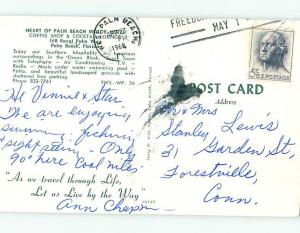 HEART OF PALM BEACH MOTOR HOTEL
COFFEE SHOP & COCKTAIL LOUNGE
160 Royal Palm Way
Palm Beach, Florida
Enjoy our Southern hospitality in luxurious
surroundings in the "Ocean Block."
with Telephone - Air Conditioning - T.V.
Radio - Music under
beautiful landscaped grounds
Phone
W. PALM BEACH
1966
FREEDOM
MAY 1
5¢ U.S. POSTAGE
POST CARD
Address
Hi Vinnie & Stan
We are enjoying
swimming, fishing,
sight seeing. Only
90° here. Cool nites.
"As we travel through Life,
Let us Live by the Way"
Ann Chapin
Mr & Mrs
Stanley Lewis
31 Garden St,
Forestville,
Conn.